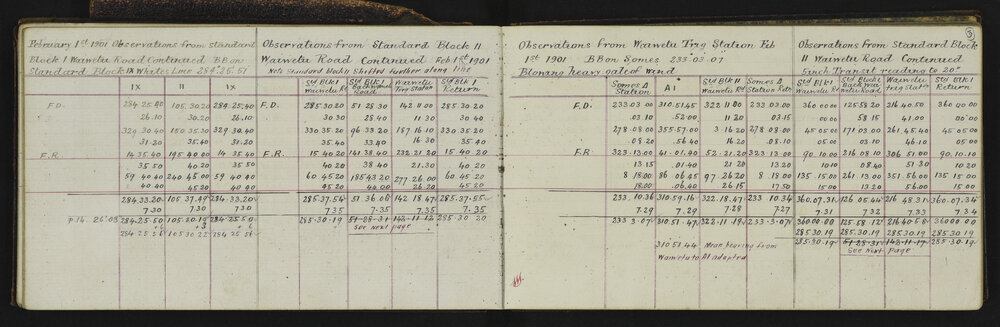 February 1st 1901 Observations from standard
Block I Waiwetu Road Continued BB on
Standard Block IX Whites Line 284.25.51
IX II IX
F.D. 284 25.40 105.30.20 284.25.40
26.10 30.30 26.10
329 30.40 150 35.30 329 30.40
31.20 35.40 31.20
F.R. 14 35.40 195 40.00 14 35.40
35.50 40.20 35.50
59 40.40 240 45.00 59 40.40
40 40 45 20 40.40
284.33.20 105 37.49 284.33.20
7.30 7.30 7.30
284.25.50 105 30.19 284.25 50
284 25 56 105 30 22 284 25 56
Observations from Standard Block II
Waiwetu Road Continued Feb 1st 1901
Note Standard block II Shifted further along line
Std Blk I Waiwetu Rd Std Blk I Backwaiwetu Road Waiwetu Trig Station Std Blk I Return
F.D. 285.30.20 51 28.30 142 11 00 285 30.20
30.30 28.40 11 30 30 40
330 35.20 96 33.20 187 16 10 330 35.20
35.40 33.40 16 30 35.40
F.R. 15 40.20 141 38.40 232.21.20 15 40.20
40 20 38.40 21.30 40 20
60 45.20 186 43 20 277.26 00 60 45.20
45 20 44.00 26 20 45 20
285.37.54 51 36 08 142 18.47 285.37.55
7.35 7.35 7.35 7.35
285.30.19 51-28-31 142-11-12 285 30 20
see Next page
Observations from Waiwetu Trig Station Feb
1st 1901 BB on Somes 233.03.07
Blowing heavy gale of wind
Somes Δ Station A1 Std Blk II Waiwetu Rd Somes Δ Station Retn
F.D. 233.03 00 310.51.45 322 11 00 233 03.00
03.10 52.00 11 20 03.15
278.08.00 355.57.00 3 16.20 278 08.00
08.20 56.40 16 20 08.10
F.R. 323.13.00 41.01.40 52.21.20 323 13 00
13.15 01.40 21 20 13.20
8 18.00 86 06 45 97 26 20 8 18 00
18.00 06.40 26 15 17.50
233.10.36 310 59.16 322.18.47 233 10 34
7.29 7.29 7.28 7.27
233 3.07 310 51.47 322.11.19 233.3.07
310 51 44 Mean bearing from
Waiwetu to A1 adopted
3
Observations from Standard Block
II Waiwetu Road Continued
5 inch Transit reading to 20"
Std Blk I Waiwetu Rd Std Block I Back Waiwetu Road Waiwetu Trig Statn Std Blk I Return
360 00 00 125 58 20 216 40 50 360 00 00
00 00 58 15 41 00 00
45 05 00 171 03 00 261.45 40 45 05 00
05 00 03 10 46 10 05 00
90.10.00 216 08 10 306 51 00 90.10.10
10 10 08 40 51 30 10 20
135.15.00 261 13 00 351 56 00 135 15 00
15 00 13 20 56 00 15 00
360.07.31 126 05 44 216 48 31 360.07.34
7.31 7.32 7.33 7.34
360 00 00 125 58 12 216 40 58 360 00 00
285 30 19 285.30.19 285.30.19 285 30 19
285.30.19 51-28.31 142-11-17 285.30.19
see Next page